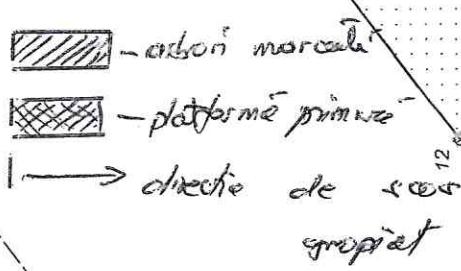 - arbori marcați
- platformă primară
12
directie de scos
apropiat